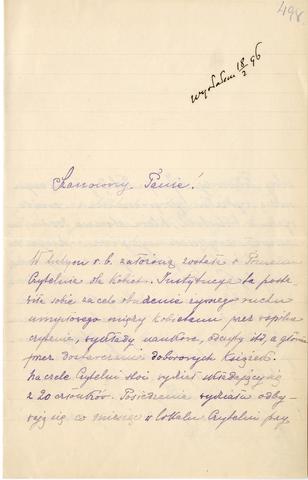 498
wysłałem 18/2 96
Szanowny Panie!
W lutym r. b. założoną została w
Czytelnia dla kobiet. Instytucya ta posta-
wiła sobie za cel obudzenie żywego ruchu
umysłowego między kobietami przez wspólne
czytanie, wykłady naukowe, odczyty itd, a głównie
przez dostarczanie doborowych książek.
Na czele Czytelni stoi wydział składający się
z 20 członków. Posiedzenia wydziału odby-
wają się co miesiąc w lokalu Czytelni przy